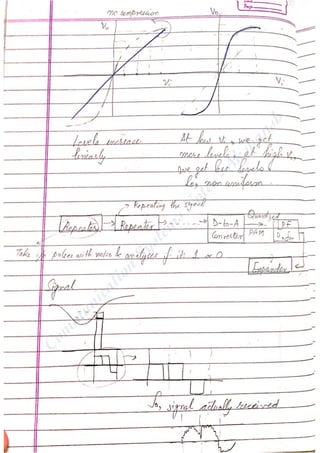 no compression
V₀
V₀
Vi
Vi
Levels increase
linearly
At low Vi, we get
more levels, at high Vi,
we get less levels
So, non uniform
→ Repeating the signal
Repeater → Repeater → D-to-A Converter
Quantized
PAM
Expander
Take pulses with noise & analyses if it's 1 or 0
Signal
So, signal actually received